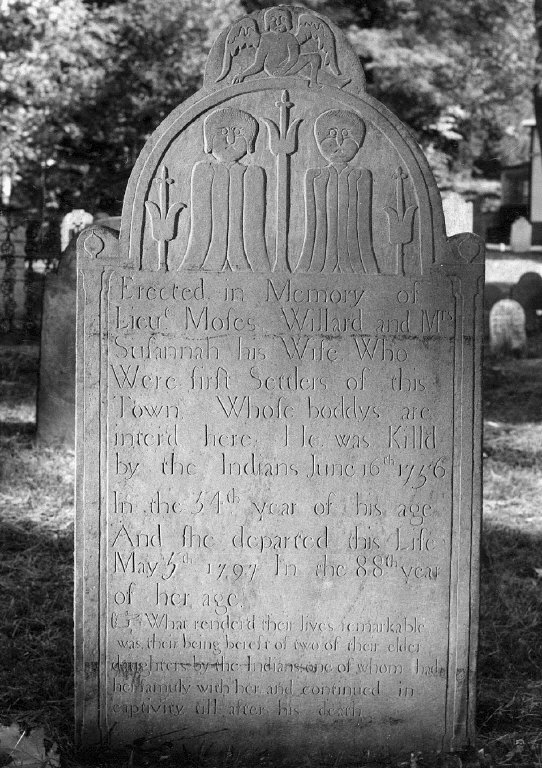 Erected in Memory of
Lieuᵗ Moſes Willard and Mʳˢ
Suſannah his Wife Who
Were firſt Settlers of this
Town Whoſe boddys are
inter'd here. He was Killd
by the Indians June 16ᵗʰ 1756
In the 54ᵗʰ year of his age
And ſhe departed this Life
May 5ᵗʰ 1797 In the 88ᵗʰ year
of her age.
What render'd their lives remarkable
was, their being bereft of two of their elder
daughters by the Indians one of whom had
her family with her and continued in
captivity till after his death